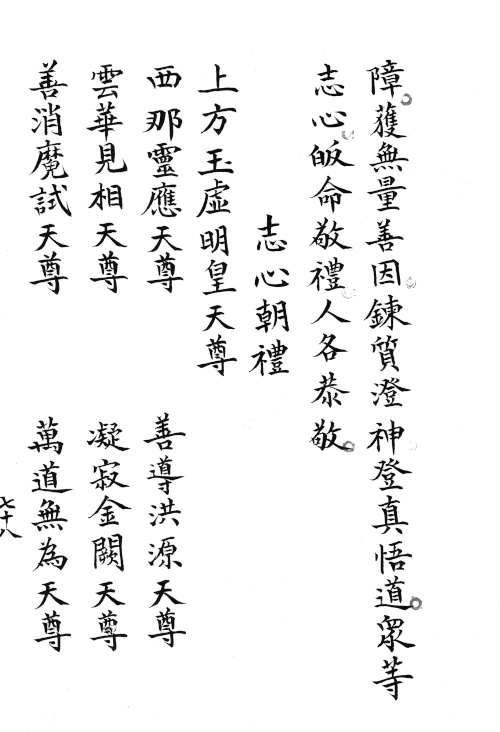 障。獲無量善因。鍊質澄神登真悟道。眾等
志心。皈命敬禮。人各恭敬。
志心朝禮
上方玉虛明皇天尊
西那靈應天尊 善導洪源天尊
雲華見相天尊 凝寂金闕天尊
善消魔試天尊 萬道無為天尊
七十八